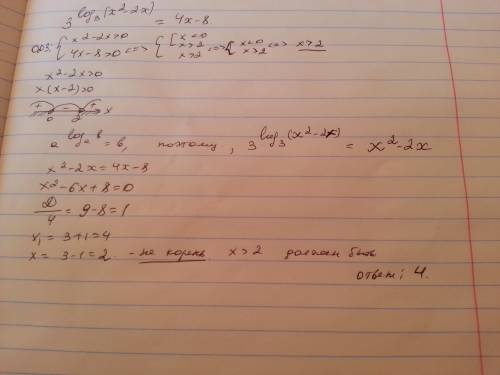 3^log₃(x²-2x) = 4x-8.
ОДЗ: { x²-2x>0 4x-8>0 <=> { [ x<0 x>2 x>2 <=> { x<0 x>2 <=> x>2
x²-2x>0
x(x-2)>0
+ - + 0 2 x
a^logₐb = b, поэтому, 3^log₃(x²-2x) = x²-2x
x²-2x=4x-8
x²-6x+8=0
D/4 = 9-8=1
x₁ = 3+1=4
x = 3-1=2. - не корень x>2 должен быть
ответ: 4.